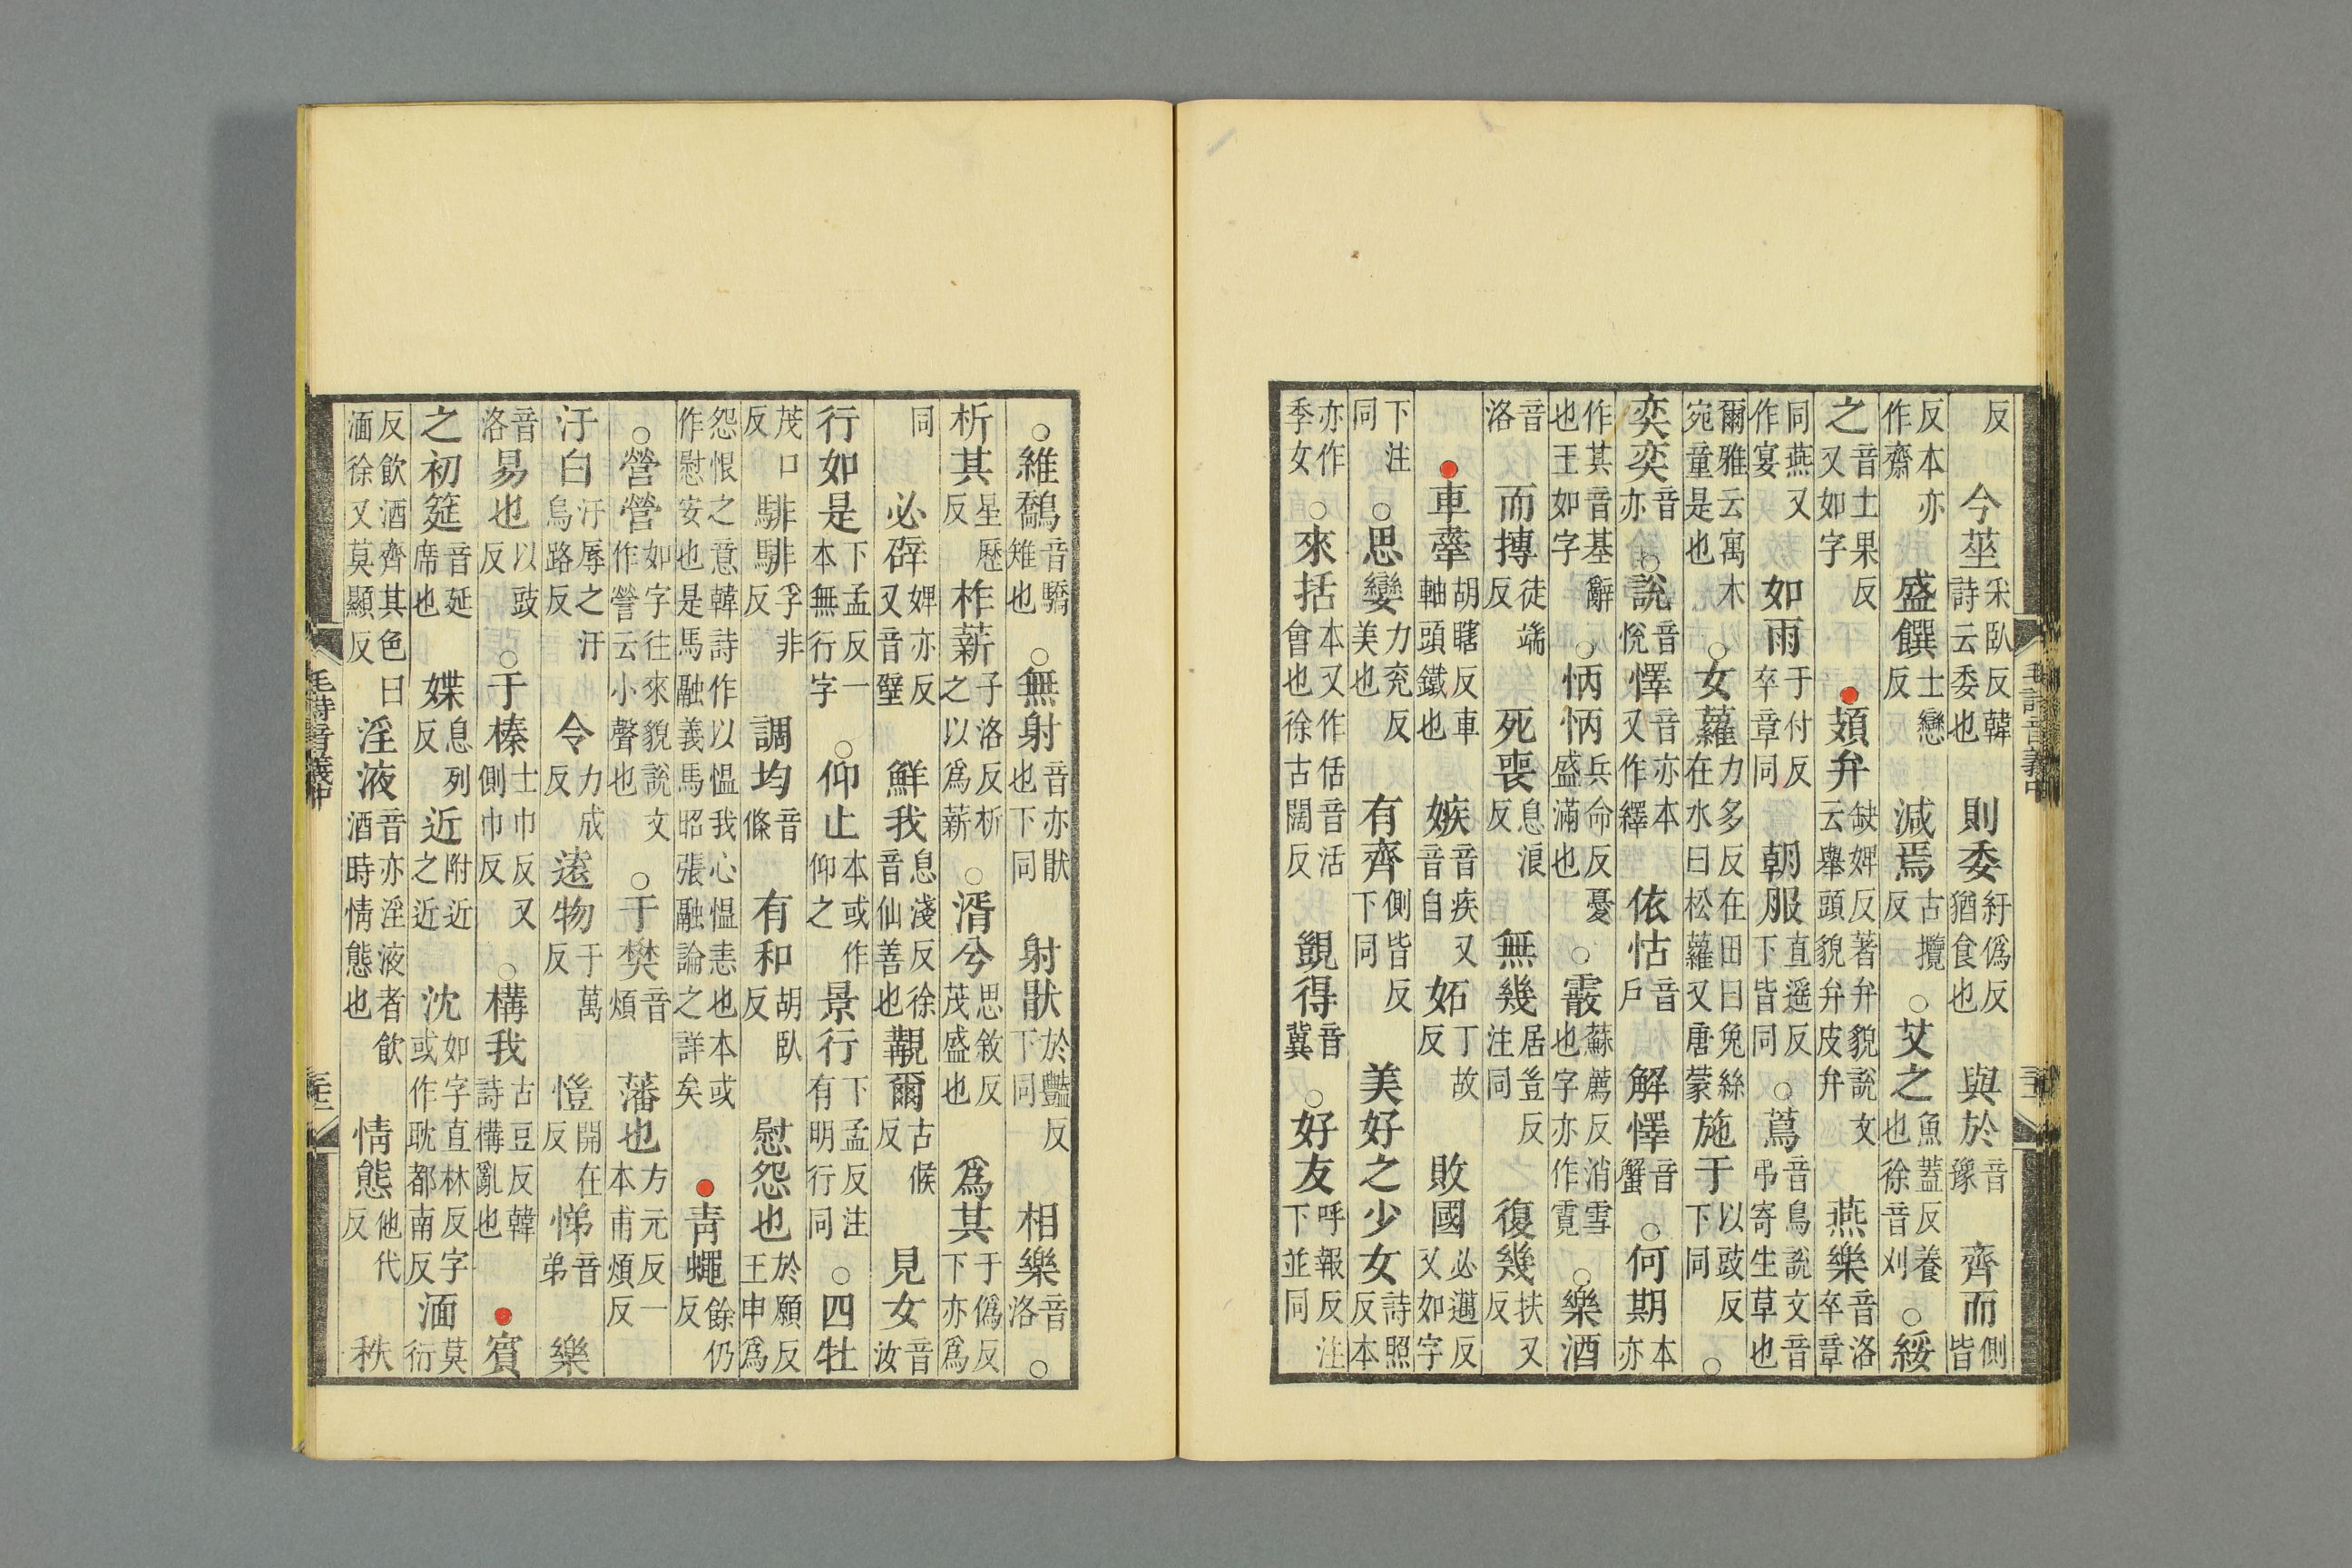 反　今莝采臥反韓詩云委也　則委紆偽反猶食也　與於音豫　齊而側皆
反本亦作齋　盛饌士戀反　減焉古攬反○艾之魚蓋反養也徐音刈○綏
之音士果反又如字●頍弁缺婢反著弁貌說文云舉頭貌弁皮弁　燕樂音洛卒章
同燕又作宴　如雨于付反卒章同　朝服直遥反下皆同○蔦音鳥說文音弔寄生草也
爾雅云寓木宛童是也○女蘿力多反在田曰兔絲在水曰松蘿又唐蒙　施于以豉反下同○
奕奕音亦○說懌音悅音亦本又作繹　依怙音戶　解懌音蟹○何期本亦
作其音基辭也王如字○怲怲兵命反憂盛滿也○霰蘇薦反消雪也字亦作霓○樂酒
音洛　而摶徒端反　死喪息浪反　無幾居豈反注同　復幾扶又反
●車舝胡瞎反車軸頭鐵也　嫉音疾又音自　妬丁故反　敗國必邁反又如字
下注同○思孌力兖反美也　有齊側皆反下同　美好之少女詩照反本
亦作季女○來括本又作佸音活會也徐古闊反　覬得音冀○好友呼報反注下並同
○維鷮音驕雉也○無射音亦猒也下同　射猒於豔反下同　相樂音洛○
析其星歷反　柞薪子洛反析之以為薪○湑兮思敘反茂盛也　為其于偽反下亦為
同　必辟婢亦反又音壁　鮮我息淺反徐音仙善也　覯爾古候反　見女音汝
行如是下孟反一本無行字○仰止本或作仰之　景行下孟反注有明行同○四牡
茂口反　騑騑孚非反　調均音條　有和胡臥反　慰怨也於願反王申為
怨恨之意韓詩作以慍我心慍恚也本或作慰安也是馬融義馬昭張融論之詳矣●青蠅餘仍反
○營營如字往來貌說文作營云小聲也○于樊音煩　藩也方元反一本甫煩反
汙白汙辱之汙烏路反　令力成反　遠物于萬反　愷開在反　悌音弟　樂
音洛　易也以豉反○于榛士巾反又側巾反○構我古豆反韓詩構亂也●賓
之初筵音延席也　媟息列反　近附近之近　沈如字直林反字或作耽都南反　湎莫衍
反飲酒齊其色曰湎徐又莫顯反　淫液音亦淫液者飲酒時情態也　情態他代反　秩
毛詩音義中
毛詩音義中